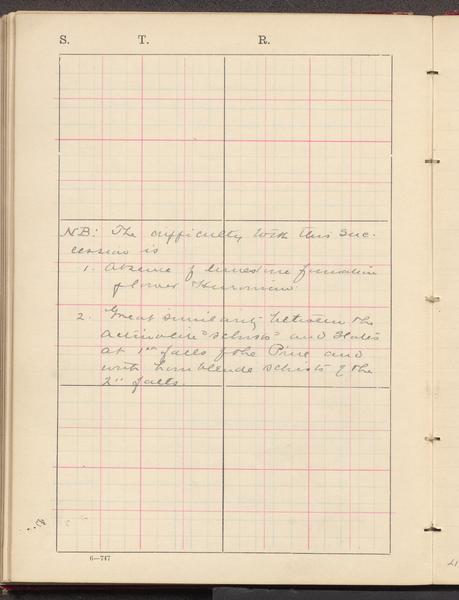 S. T. R.
NB: The difficulty with this suc-
cession is
1. Absence of limestone formation
of lower Huronian.
2. Great similarity between the
actinolite "schists" and slates
at 1st falls of the Pine and
with hornblende schists of the
2" falls.
6—747